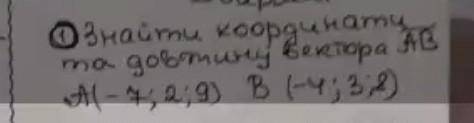 ① Знайти координати
та довжину вектора AB
A(-7; 2; 9) B (-4; 3; 2)